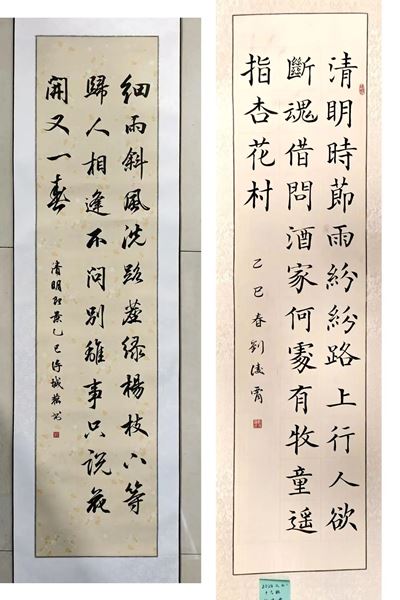 細雨斜風洗路塵緑楊枝下等
歸人相逢不問別離事只說花
開又一春
清明即景乙巳
清明時節雨紛紛路上行人欲
斷魂借問酒家何處有牧童遥
指杏花村
乙巳春劉凌霄